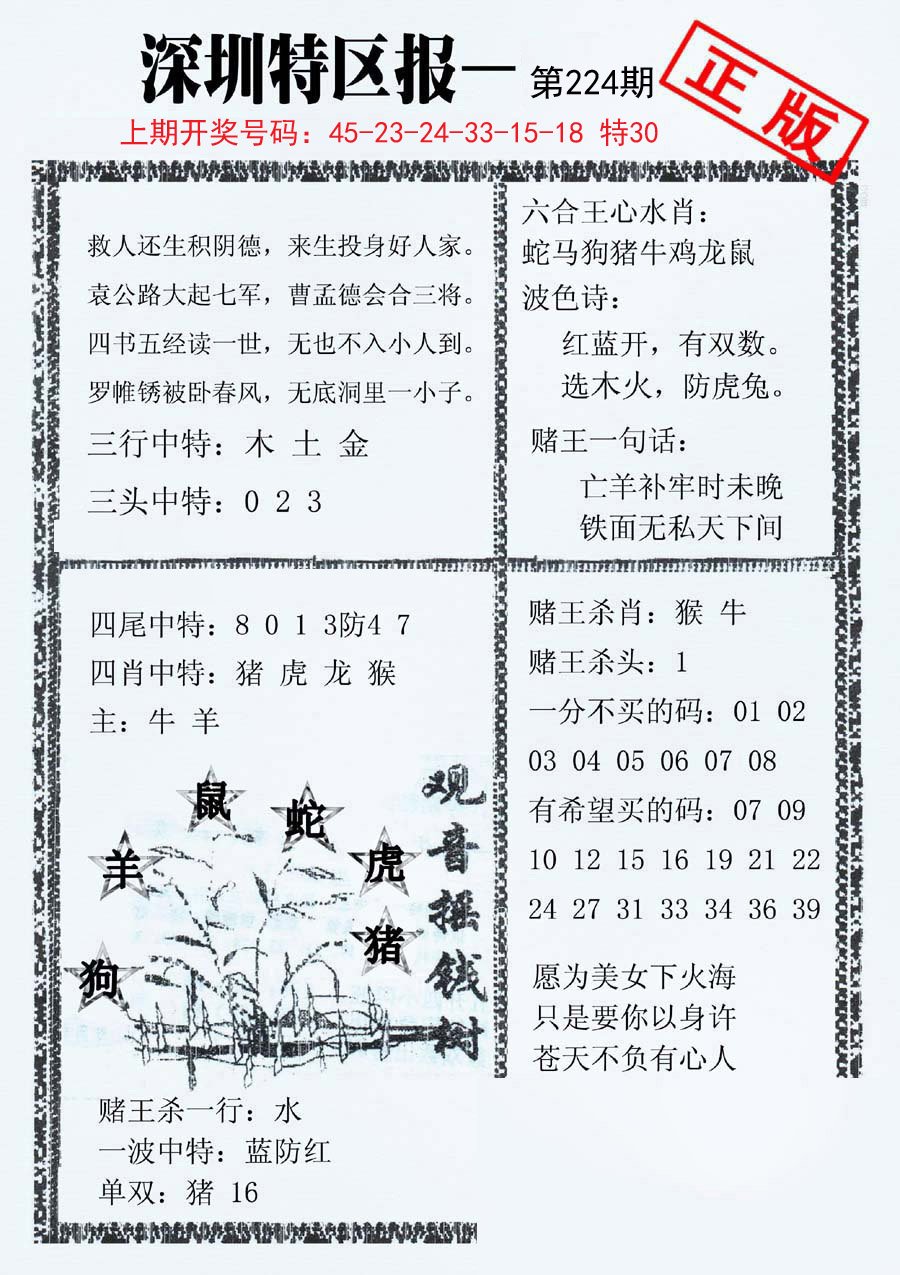 深圳特区报一 第224期
正版
上期开奖号码：45-23-24-33-15-18 特30
救人还生积阴德，来生投身好人家。
袁公路大起七军，曹孟德会合三将。
四书五经读一世，无也不入小人到。
罗帷锈被卧春风，无底洞里一小子。
三行中特：木 土 金
三头中特：0 2 3
六合王心水肖：
蛇马狗猪牛鸡龙鼠
波色诗：
红蓝开，有双数。
选木火，防虎兔。
赌王一句话：
亡羊补牢时未晚
铁面无私天下间
四尾中特：8 0 1 3防4 7
四肖中特：猪 虎 龙 猴
主：牛 羊
鼠
蛇
羊
虎
猪
狗
观音摇钱树
赌王杀一行：水
一波中特：蓝防红
单双：猪 16
赌王杀肖：猴 牛
赌王杀头：1
一分不买的码：01 02
03 04 05 06 07 08
有希望买的码：07 09
10 12 15 16 19 21 22
24 27 31 33 34 36 39
愿为美女下火海
只是要你以身许
苍天不负有心人